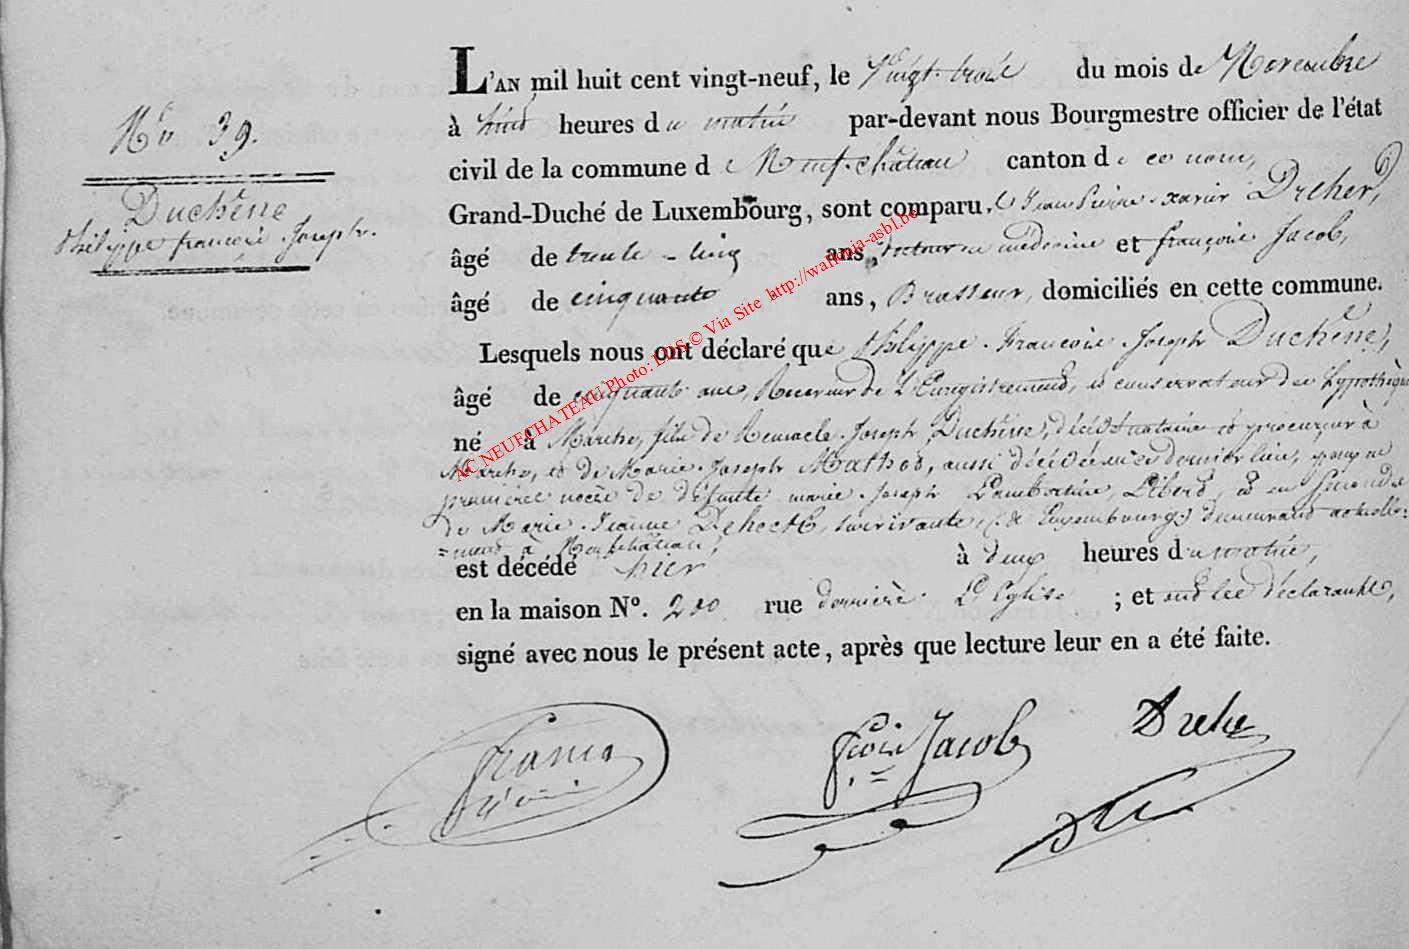 L'AN mil huit cent vingt-neuf, le Vingt-trois du mois de Novembre
à huit heures du matin par-devant nous Bourgmestre officier de l'état
No 39.
civil de la commune de Neufchâteau canton de ce nom,
Duchêne
Philippe françois Joseph.
Grand-Duché de Luxembourg, sont comparu, Jean Pierre Xavier Dreher,
âgé de trente-cinq ans, docteur en médecine et françois Jacob,
âgé de cinquante ans, Brasseur, domiciliés en cette commune.
Lesquels nous ont déclaré que Philippe François Joseph Duchêne,
âgé de cinquante ans, Receveur de l'Enregistrement, et conservateur des hypothèques
né à Marche, fils de Remacle Joseph Duchêne, décédé notaire et procureur à
Marche, et de Marie Joseph Mathot, aussi décédée en ce dernier lieu, époux en
première noces de défunte marie Joseph Lambertine Libert, et en secondes
de Marie Jeanne Dehoct, survivante, (de Luxembourg) demeurant actuelle=
=ment à Neufchâteau,
est décédé hier à deux heures du matin,
en la maison No. 200 rue derrière L'Eglise ; et ont les déclarants,
signé avec nous le présent acte, après que lecture leur en a été faite.
fçois Jacob
Dreher
AC NEUFCHATEAU Photo: LDS © Via Site http://wallonia-asbl.be